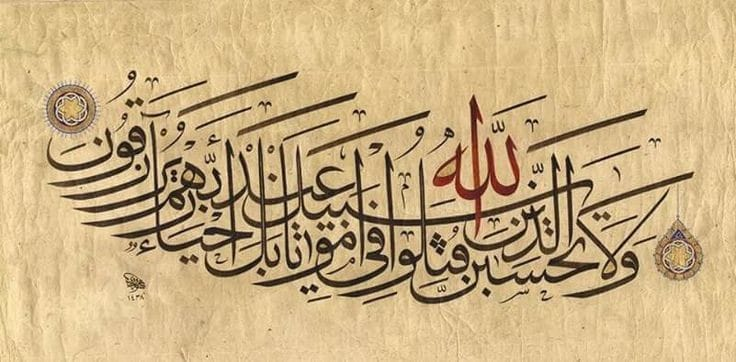 وَلَا تَحْسَبَنَّ الَّذِينَ قُتِلُوا فِي سَبِيلِ اللَّهِ أَمْوَاتًا بَلْ أَحْيَاءٌ عِنْدَ رَبِّهِمْ يُرْزَقُونَ
١٤٣٨